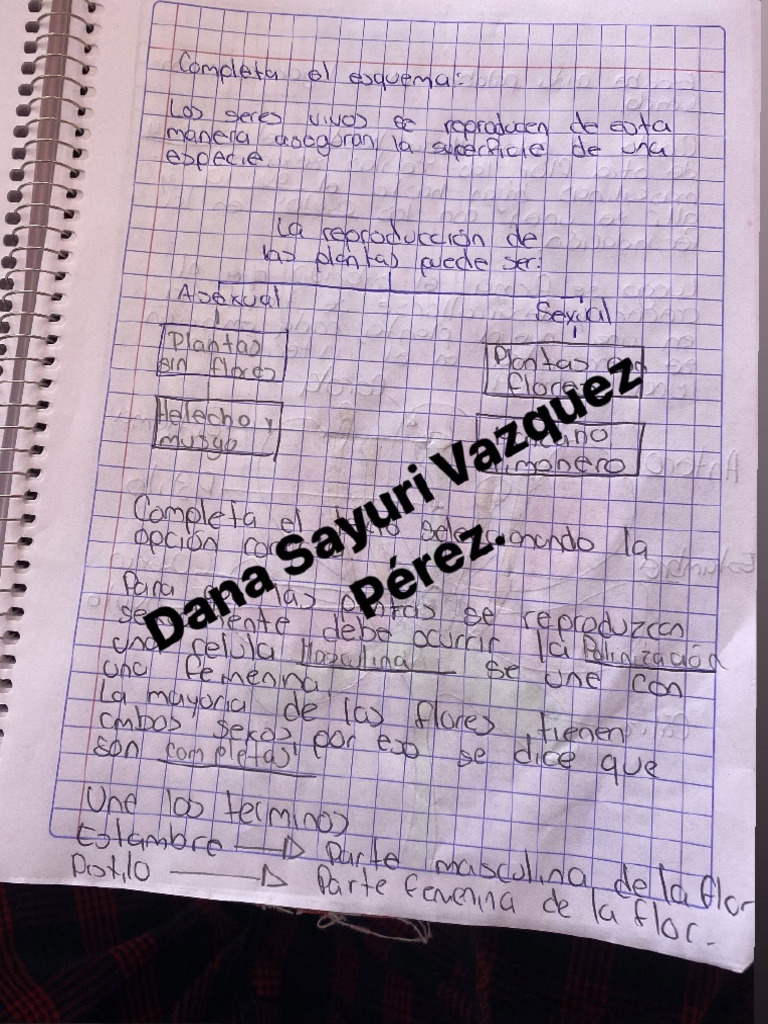 Completa el esquema:
Los seres vivos se reproducen de esta
manera aseguran la superficie de una
especie.
La reproducción de
las plantas puede ser:
Asexual
Sexual
Plantas
sin flores
Plantas
flores
Helecho y
musgo
limonero
Completa el selecionando la
opción
Para las plantas se reproduzcan
debe ocurrir la Polinización
una celula Masculina se une con
una femenina
La mayoria de las flores tienen
ambos sexos por eso se dice que
son completas
Une los terminos
Estambre → Parte masculina de la flor
Pistilo → Parte femenina de la flor.
Dana Sayuri Vazquez
Pérez.